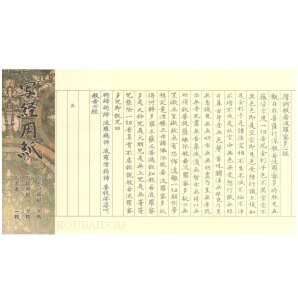 摩訶般若波羅蜜多心経
観自在菩薩行深般若波羅蜜多時照見五
蘊皆空度一切苦厄舎利子色不異空空不
異色色即是空空即是色受想行識亦復如
是舎利子是諸法空相不生不滅不垢不浄
不増不減是故空中無色無受想行識無眼
耳鼻舌身意無色声香味触法無眼界乃至
無意識界無無明亦無無明尽乃至無老死
亦無老死尽無苦集滅道無智亦無得以無
所得故菩提薩埵依般若波羅蜜多故心無
罣礙無罣礙故無有恐怖遠離一切顛倒夢
想究竟涅槃三世諸仏依般若波羅蜜多故
得阿耨多羅三藐三菩提故知般若波羅蜜
多是大神呪是大明呪是無上呪是無等等
呪能除一切苦真実不虚故説般若波羅蜜
多呪即説呪曰
羯諦羯諦波羅羯諦波羅僧羯諦菩提薩婆訶
般若心経
為
写経用紙
KOUBAIDOU